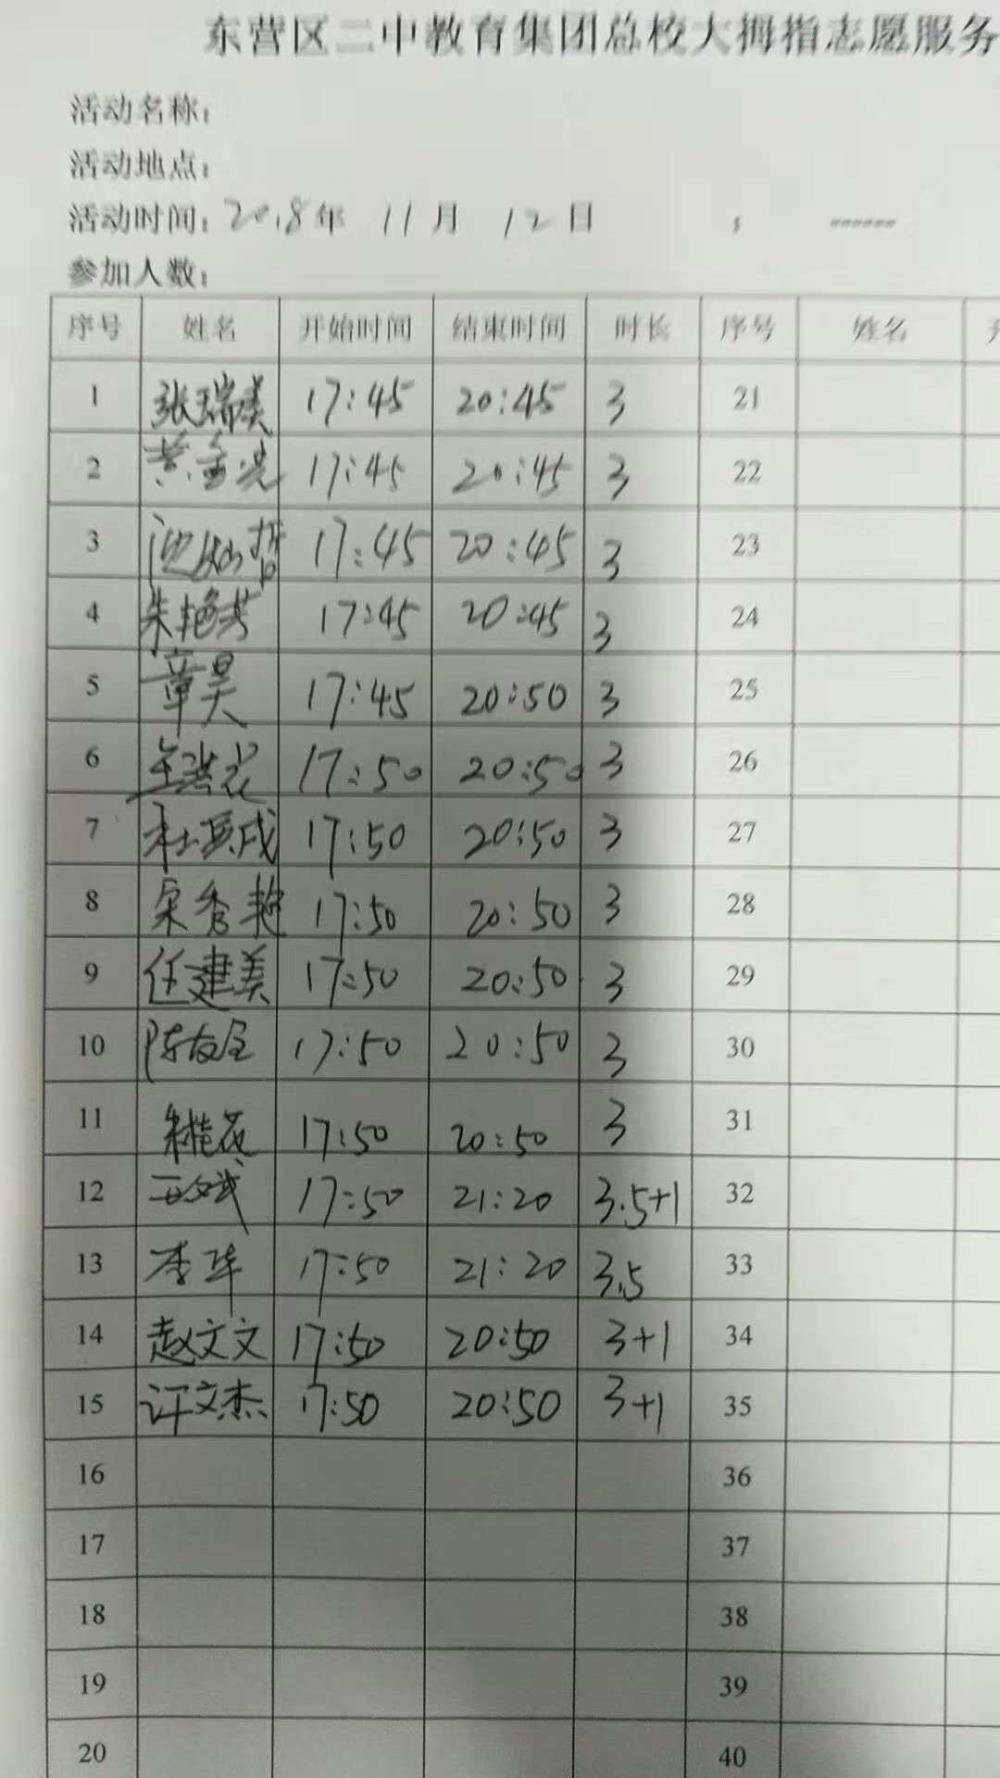 东营区二中教育集团总校大拇指志愿服务
活动名称：
活动地点：
活动时间：2018年 11月 12日 ：------
参加人数：
序号 姓名 开始时间 结束时间 时长 序号 姓名
1 张瑞美 17:45 20:45 3 21
2 黄金港 17:45 20:45 3 22
3 17:45 20:45 3 23
4 朱艳芳 17:45 20:45 3 24
5 章昊 17:45 20:50 3 25
6 王洪花 17:50 20:50 3 26
7 17:50 20:50 3 27
8 宋秀艳 17:50 20:50 3 28
9 任建美 17:50 20:50 3 29
10 陈友全 17:50 20:50 3 30
11 朱桂花 17:50 20:50 3 31
12 17:50 21:20 3.5+1 32
13 李华 17:50 21:20 3.5 33
14 赵文文 17:50 20:50 3+1 34
15 许文杰 17:50 20:50 3+1 35
16 36
17 37
18 38
19 39
20 40